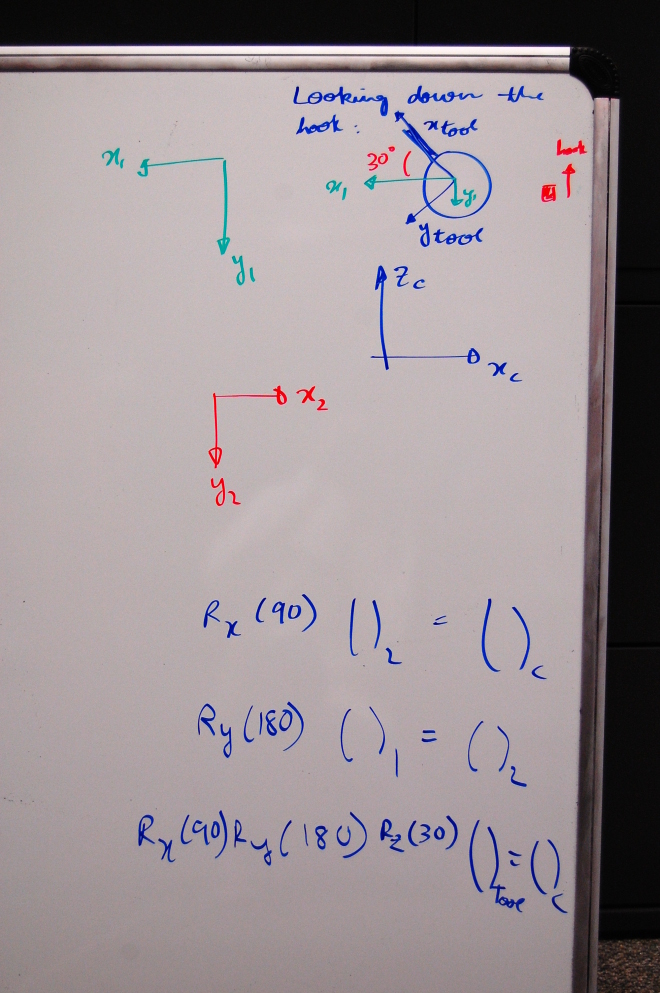 Looking down the
hook:
x tool
30°
x₁
y₁
y tool
hook
x₁
y₁
Z_c
x_c
x₂
y₂
R_x (90) ( )₂ = ( )_c
R_y (180) ( )₁ = ( )₂
R_x (90) R_y (180) R_z (30) ( )_tool = ( )_c